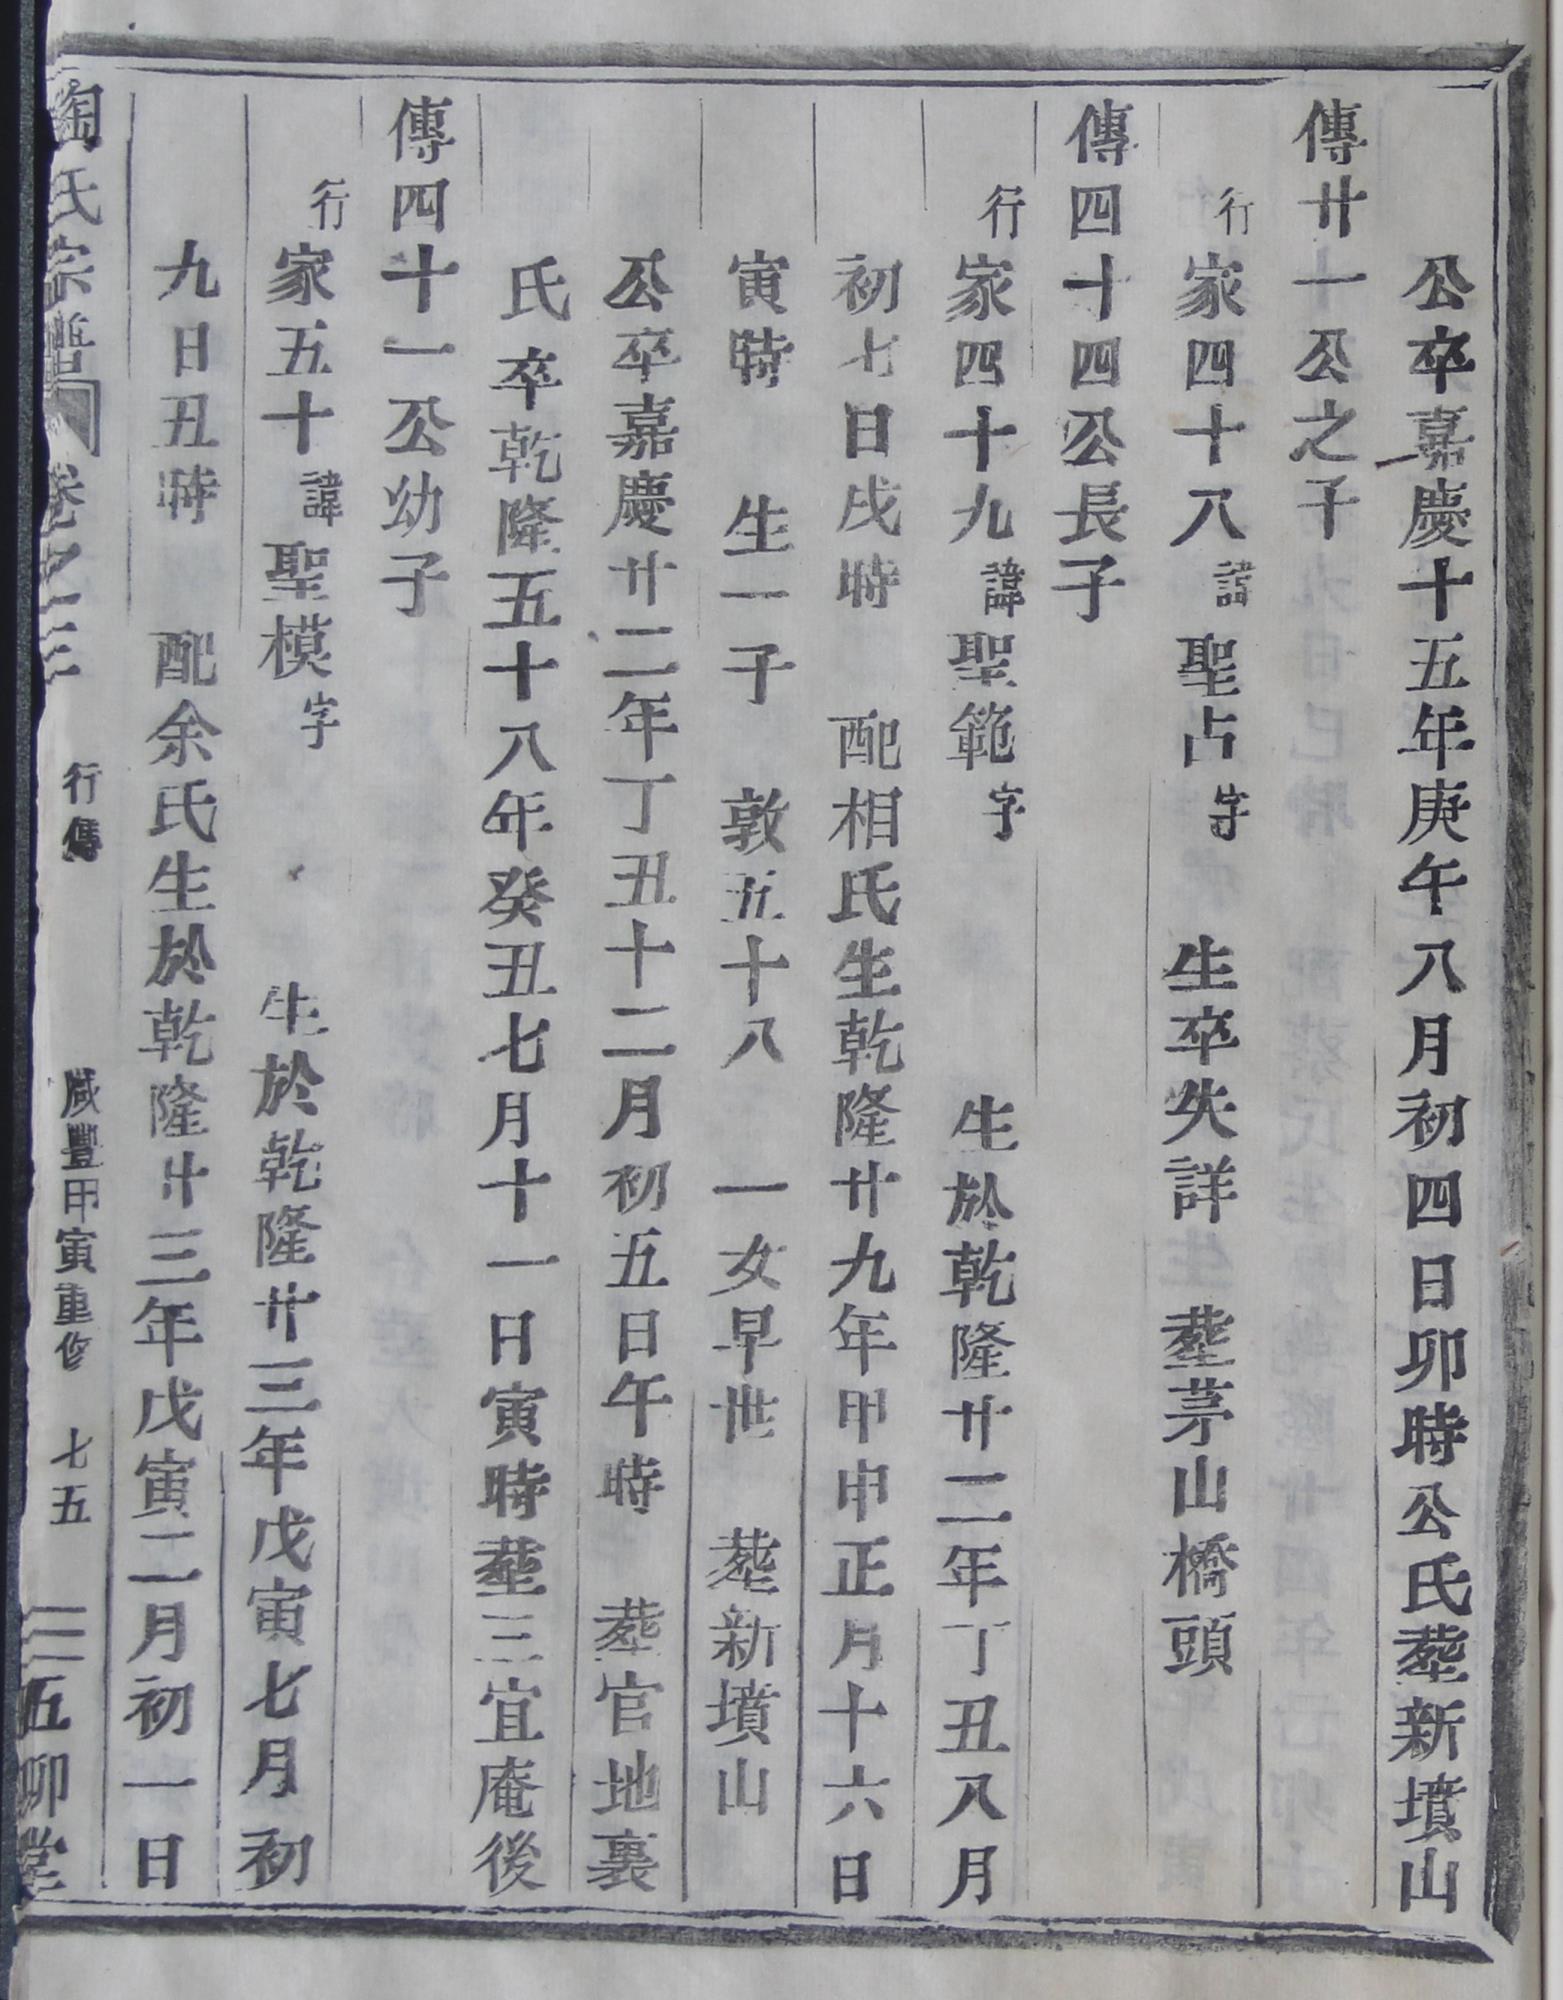 公卒嘉慶十五年庚午八月初四日卯時公氏塟新墳山
傳廿一公之子
行家四十八諱聖占字 生卒失詳 塟茅山橋頭
傳四十四公長子
行家四十九諱聖範字 生於乾隆廿二年丁丑八月
初七日戌時 配相氏生乾隆廿九年甲申正月十六日
寅時 生一子 敦五十八 一女早世 塟新墳山
公卒嘉慶廿二年丁丑十二月初五日午時 塟官地裏
氏卒乾隆五十八年癸丑七月十一日寅時塟三宜庵後
傳四十一公幼子
行家五十諱聖模字 生於乾隆廿三年戊寅七月初
九日丑時 配余氏生於乾隆廿三年戊寅二月初一日
陶氏宗譜 卷之三 行傳 咸豐甲寅重修 七五 五柳堂